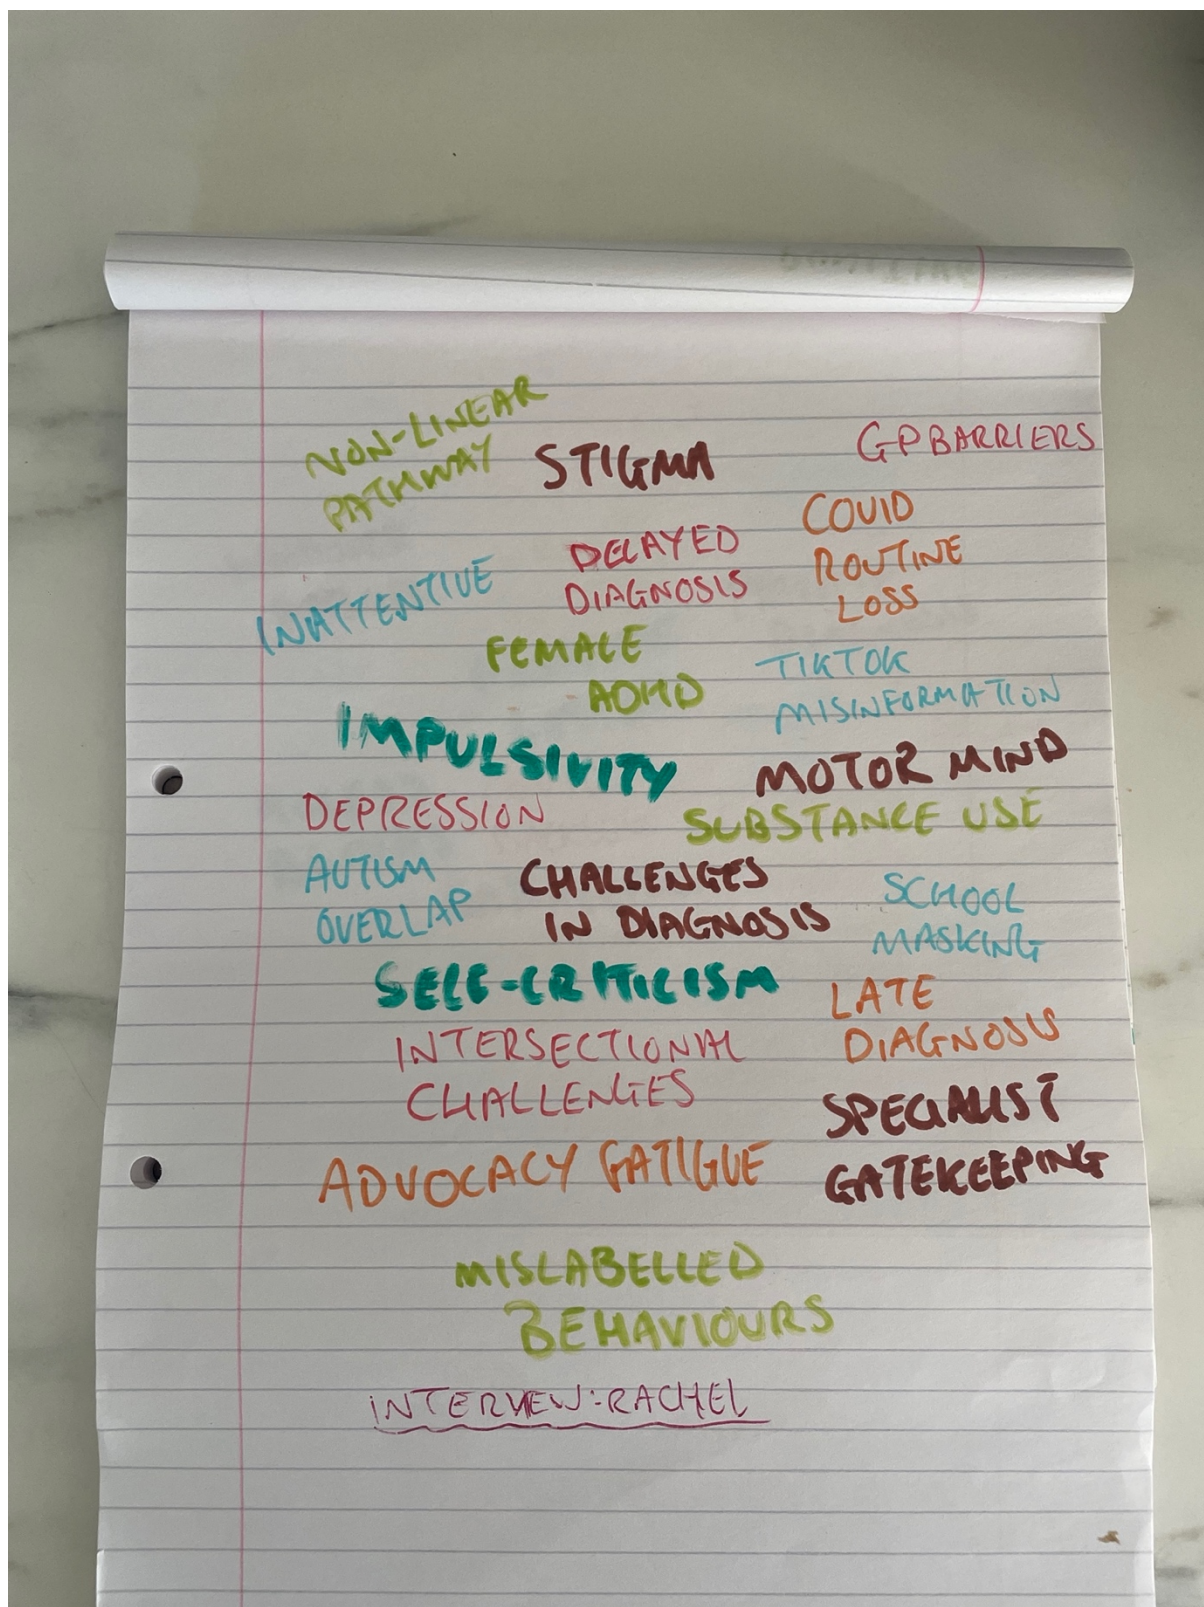 NON-LINEAR
PATHWAY
STIGMA
GP BARRIERS
COVID
ROUTINE
LOSS
DELAYED
DIAGNOSIS
INATTENTIVE
FEMALE
ADHD
TIKTOK
MISINFORMATION
IMPULSIVITY
MOTOR MIND
DEPRESSION
SUBSTANCE USE
AUTISM
OVERLAP
CHALLENGES
IN DIAGNOSIS
SCHOOL
MASKING
SELF-CRITICISM
LATE
DIAGNOSIS
INTERSECTIONAL
CHALLENGES
SPECIALIST
GATEKEEPING
ADVOCACY FATIGUE
MISLABELLED
BEHAVIOURS
INTERVIEW: RACHEL